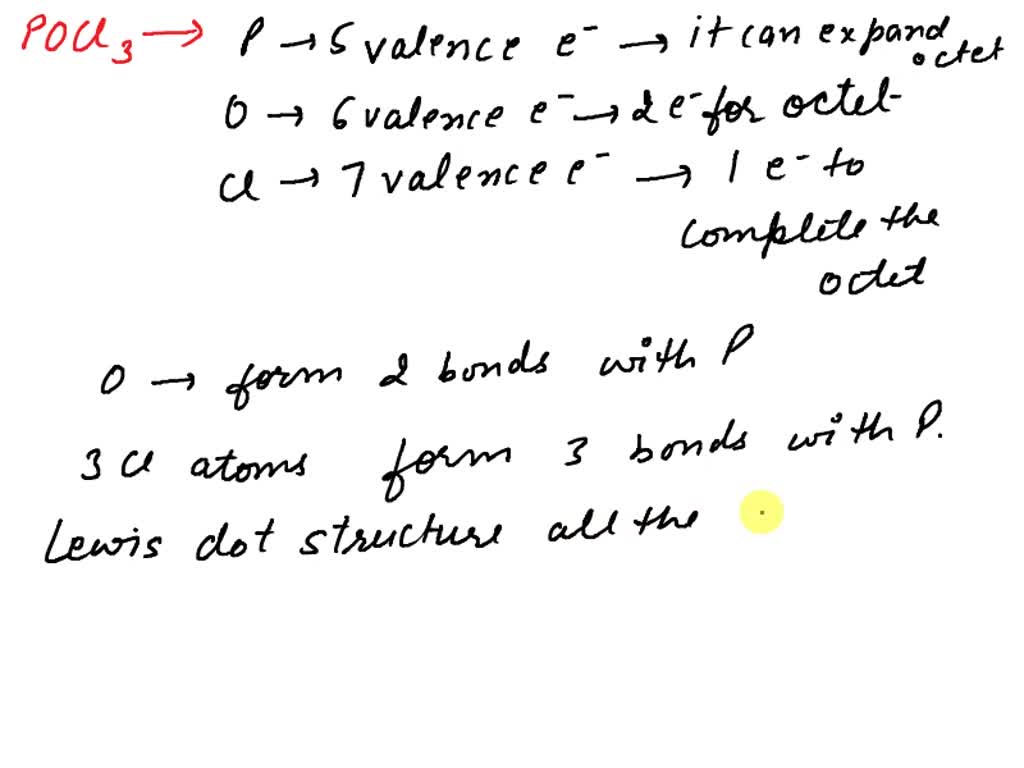 POCl3 → P → 5 valence e⁻ → it can expand octet
O → 6 valence e⁻ → 2 e⁻ for octet
Cl → 7 valence e⁻ → 1 e⁻ to
complete the
octet
O → form 2 bonds with P
3 Cl atoms form 3 bonds with P.
Lewis dot structure all the